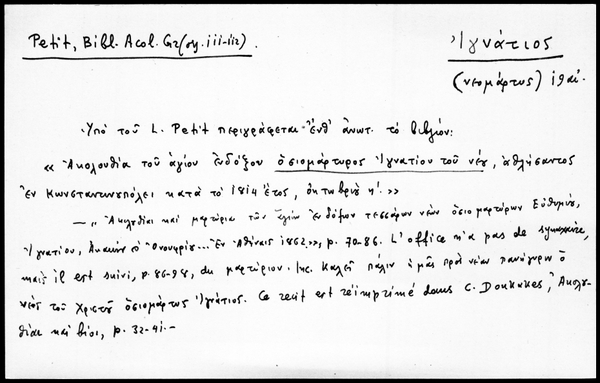 Petit, Bibl. Acol. Gr. (σσ. iii-iiz).
Ἰγνάτιος
(νεομάρτυς) 19 αἰ.
Ὑπὸ τοῦ L. Petit περιγράφεται ἔνθ' ἀνωτ. τὸ βιβλίον:
« Ἀκολουθία τοῦ ἁγίου ἐνδόξου ὁσιομάρτυρος Ἰγνατίου τοῦ νέου, ἀθλήσαντος
ἐν Κωνσταντινουπόλει κατὰ τὸ 1814 ἔτος, ὀκτωβρίου η'. »
— „ Ἀκολουθίαι καὶ μαρτύρια τῶν ἁγίων ἐνδόξων τεσσάρων νέων ὁσιομαρτύρων Εὐθυμίου,
Ἰγνατίου, Ἀκακίου καὶ Ὀνουφρίου... Ἐν Ἀθήναις 1862 », p. 70-86. L'office n'a pas de synaxaire,
mais il est suivi, p. 86-98, du μαρτύριον. Inc. Καλεῖ πάλιν ἡμᾶς πρὸς νέαν πανήγυριν ὁ
νέος τοῦ Χριστοῦ ὁσιομάρτυς Ἰγνάτιος. Ce récit est réimprimé dans C. Doukakes, Ἀκολου-
θίαι καὶ βίοι, p. 32-41.-